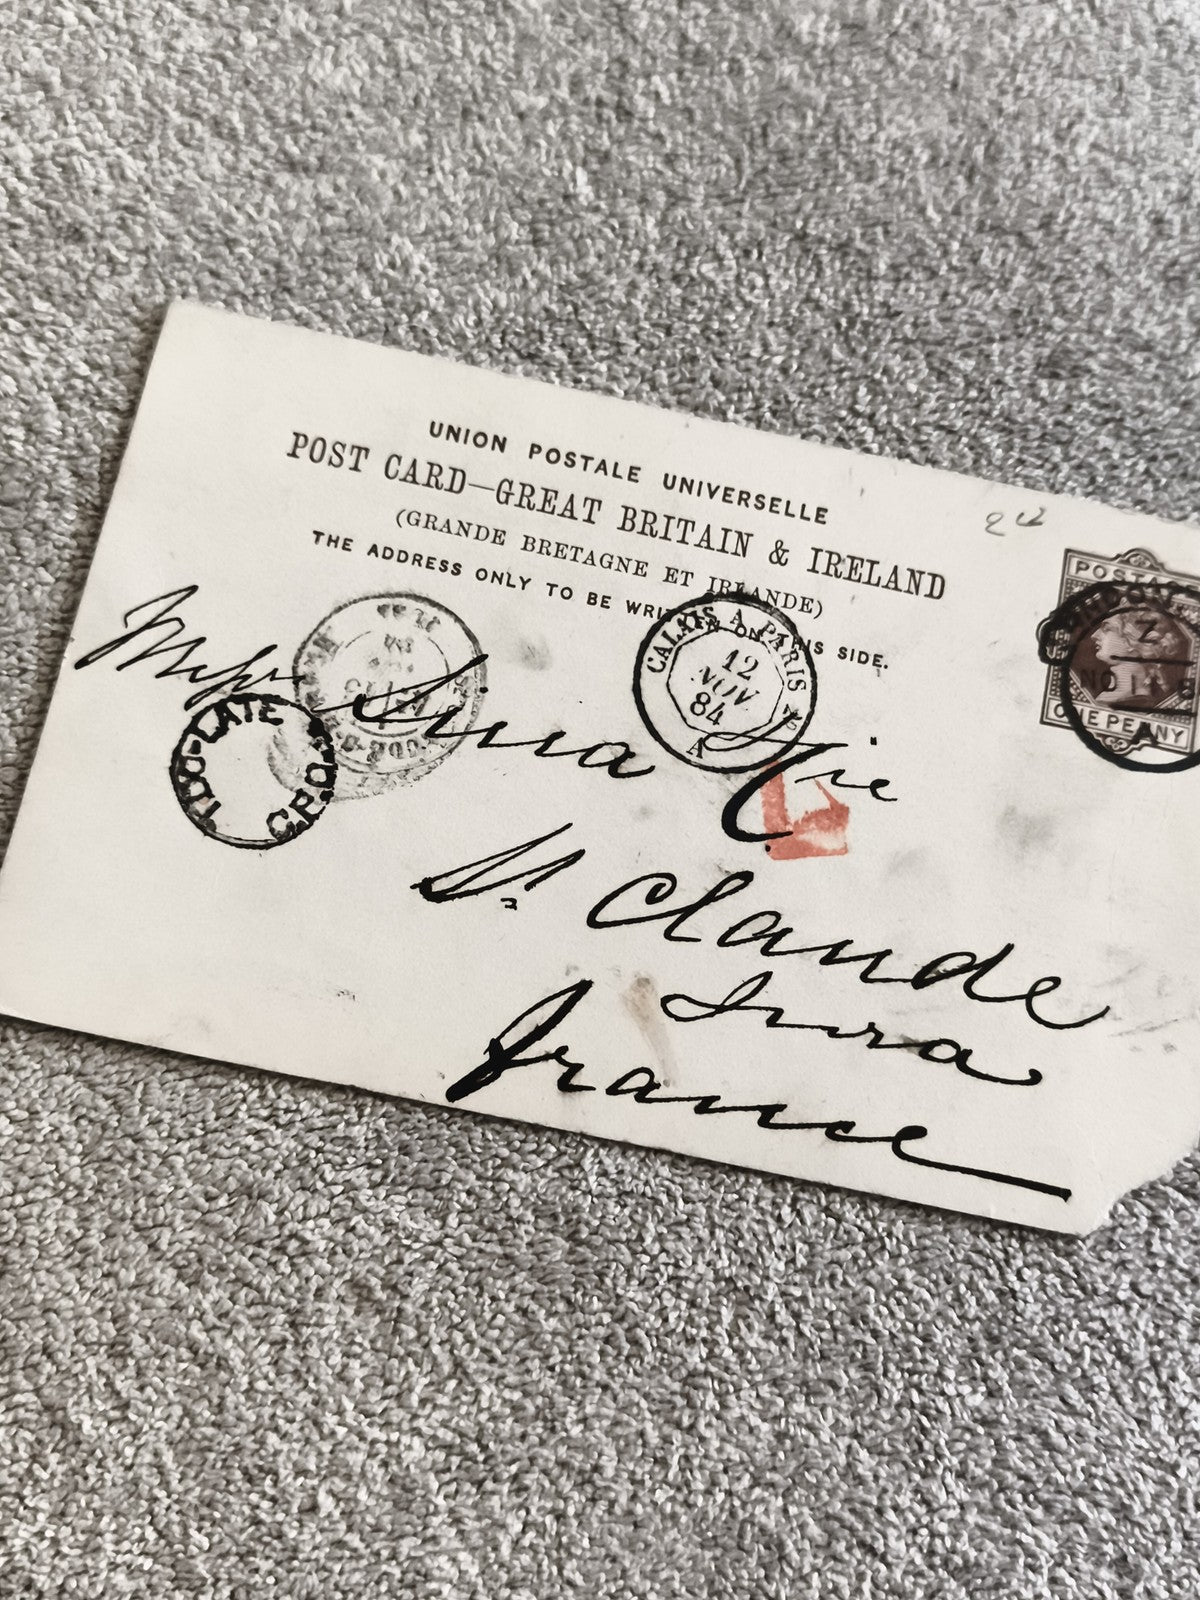 UNION POSTALE UNIVERSELLE
POST CARD—GREAT BRITAIN & IRELAND
(GRANDE BRETAGNE ET IRLANDE)
THE ADDRESS ONLY TO BE WRITTEN ON THIS SIDE.
POSTAGE
LONDON
Z
NO 11 8
ONE PENNY
CALAIS A PARIS
12
NOV
84
A
TOO-LATE
G.P.O.
Messrs
St. Claude
Jura
France